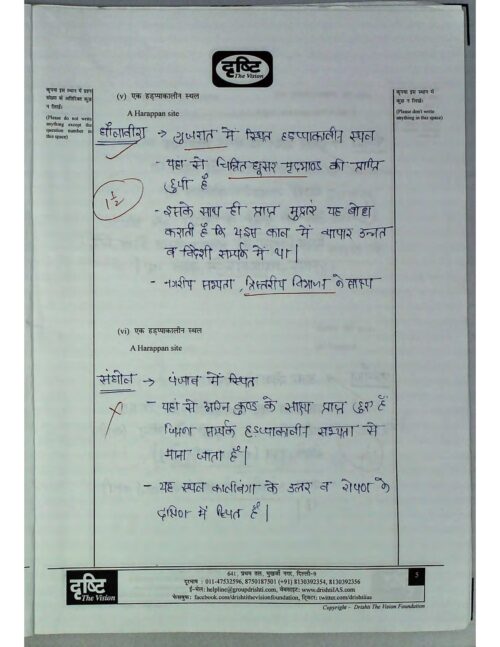 दृष्टि
The Vision
कृपया इस स्थान में प्रश्न
संख्या के अतिरिक्त कुछ
न लिखें।
(Please do not write
anything except the
question number in
this space)
कृपया इस स्थान में
कुछ न लिखें।
(Please don't write
anything in this space)
(v) एक हड़प्पाकालीन स्थल
A Harappan site
धौलावीरा → गुजरात में स्थित हडप्पाकालीन स्थल
- यहां से चित्रित धूसर मृदभाण्ड की प्राप्ति
हुयी है
1½
- इसके साथ ही प्राप्त मुद्राएं यह बोध
कराती है कि यह काल में व्यापार उन्नत
व विदेशी सम्पर्क में था|
- नगरीय सभ्यता, त्रिस्तरीय विभाजन के साक्ष्य
(vi) एक हड़प्पाकालीन स्थल
A Harappan site
संघोल → पंजाब में स्थित
- यहां से अग्नि कुण्ड के साक्ष्य प्राप्त हुए हैं
जिसका सम्पर्क हडप्पाकालीन सभ्यता से
माना जाता है|
- यह स्थल कालीबंगा के उत्तर व रोपण के
दक्षिण में स्थित है|
641, प्रथम तल, मुखर्जी नगर, दिल्ली-9
दूरभाष : 011-47532596, 8750187501 (+91) 8130392354, 8130392356
ई-मेल: helpline@groupdrishti.com, वेबसाइट: www.drishtiIAS.com
फेसबुक: facebook.com/drishtithevisionfoundation, ट्विटर: twitter.com/drishtiias
दृष्टि
The Vision
5
Copyright - Drishti The Vision Foundation